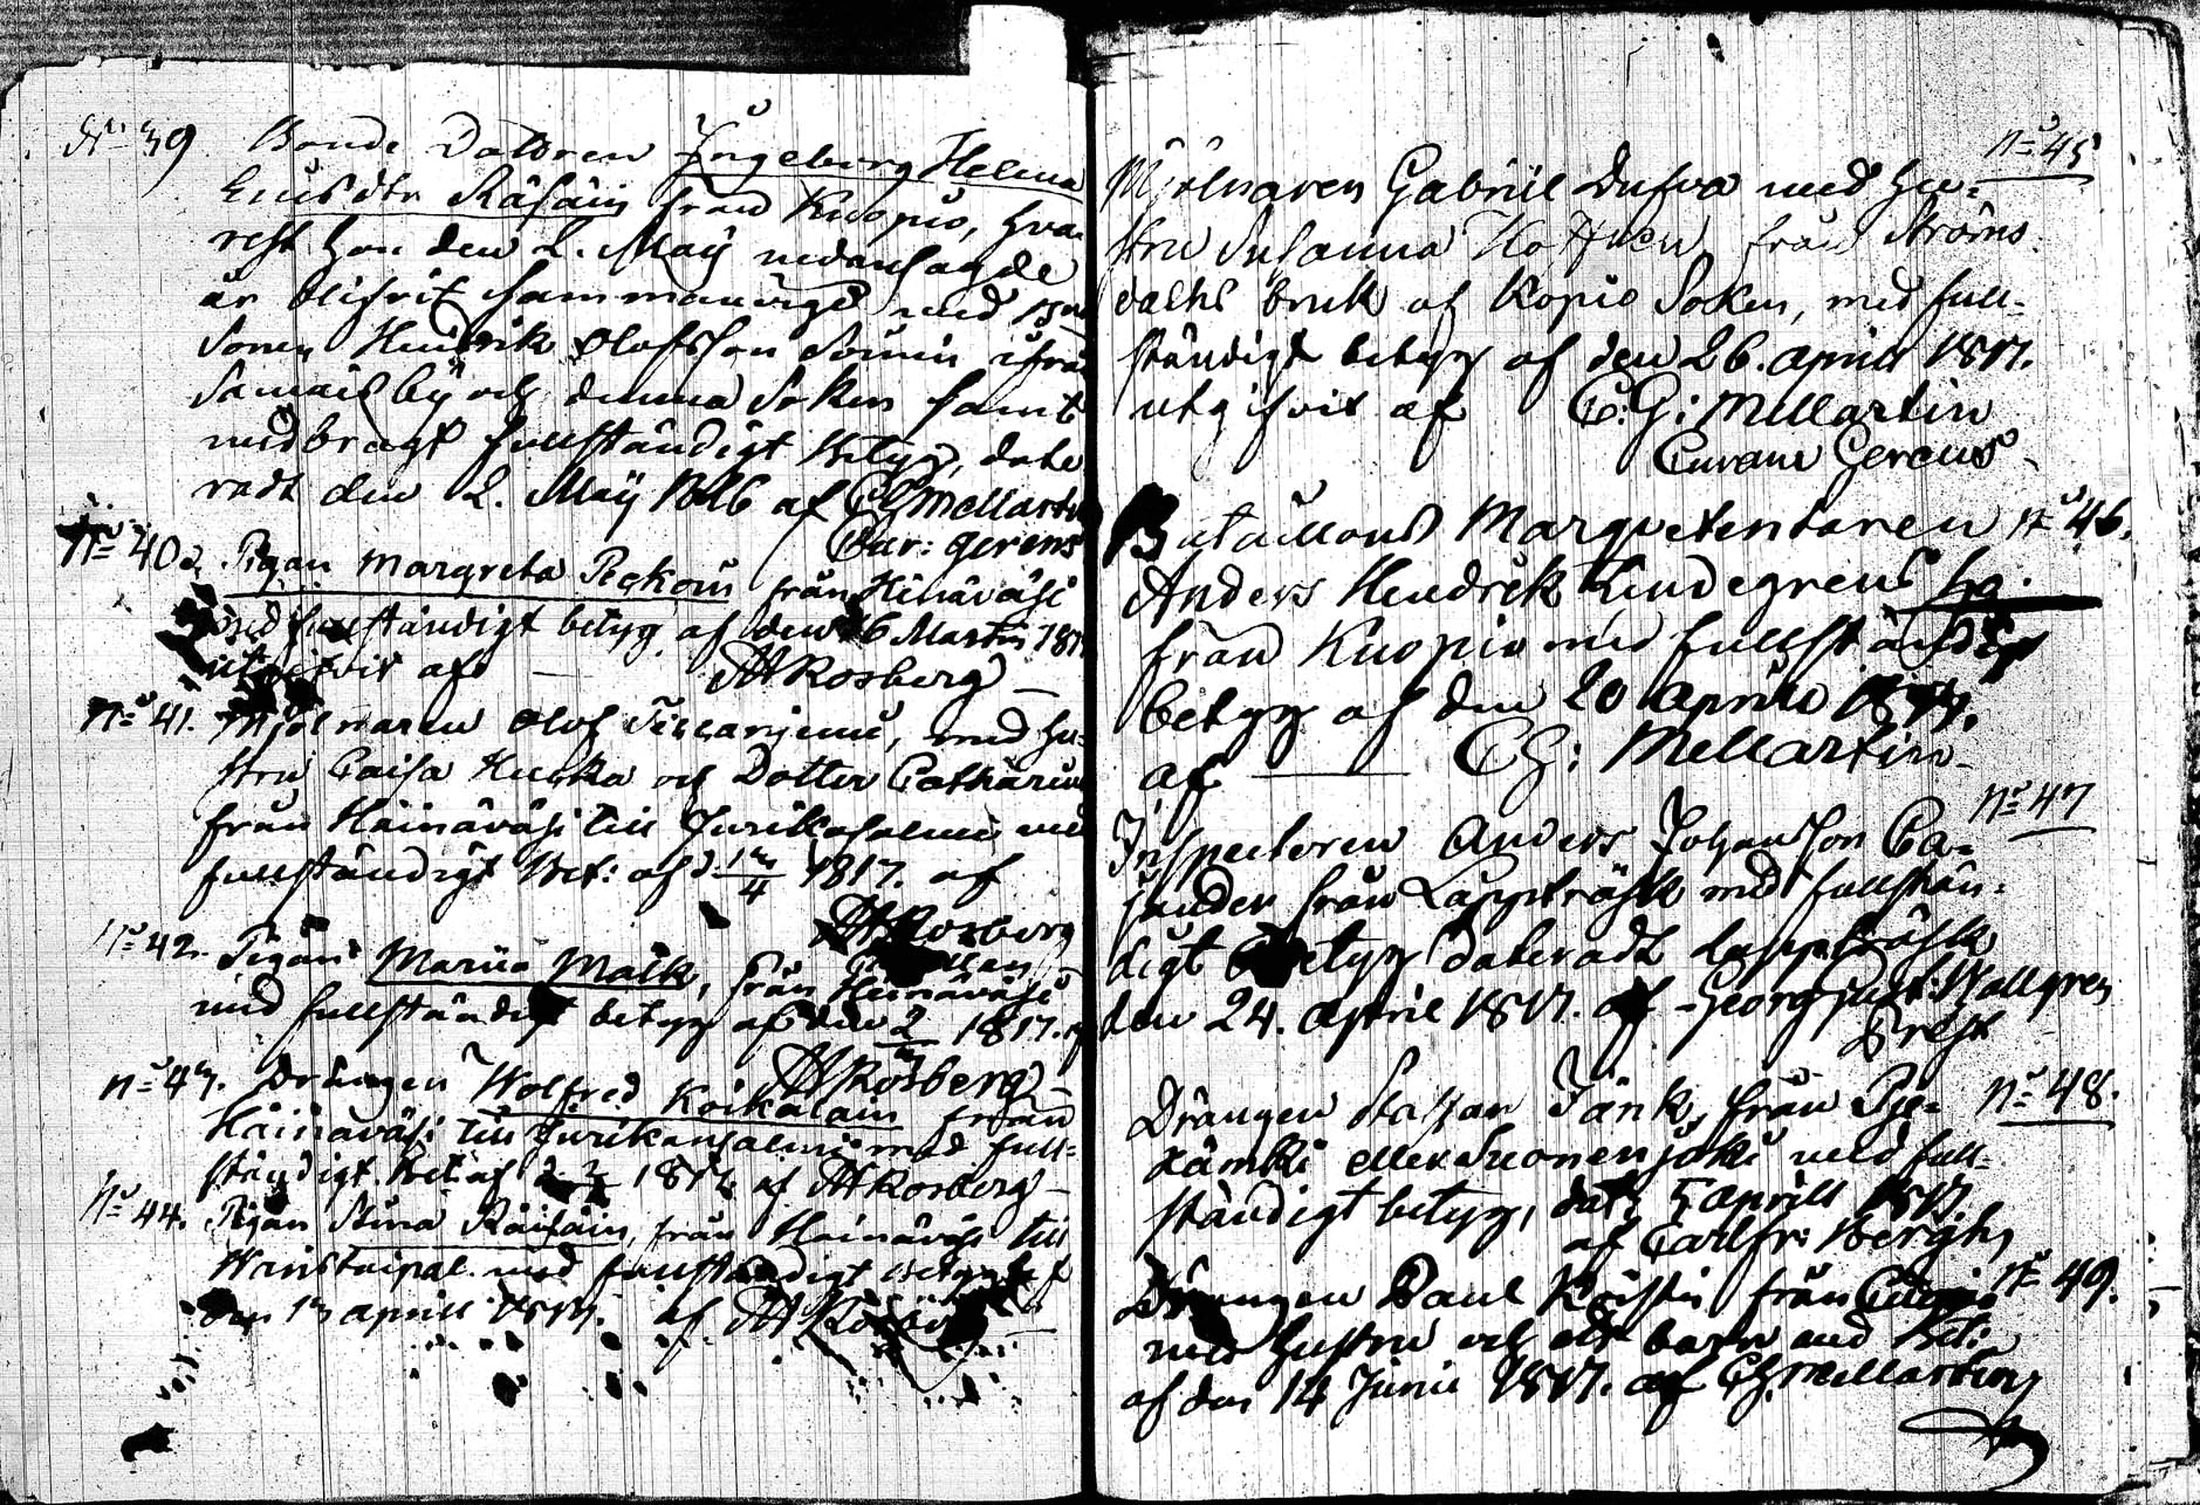 N:o 39. Bonde Dottren Ingeborg Helena
Räsäin från Kuopio, hva-
rest hon den 2. Maij nedansagde
år blifvit sammanvigd med
Sonen Hendrik Olofsson Sormin ifrån
by och denna Soken samt
medbragt fullständigt Betyg, date
radt den 2. Maij 1816 af CGMellartin
Cur: gerens
N:o 40. Pigan Margreta Peckoin från Hinäväsi
med fullständigt betyg af den 16 Martii 181
utgifvit af — AHRosberg —
N:o 41. Mjölnaren Olof, med hu-
stru Caisa Hucka och Dotter Catharina
från Häinäväsi till med
fullständigt Bet: af d. 13/4 1817. af
AHRosberg
N:o 42. Pigan Maria Malk, från Heinäväsi
med fullständigt betyg af den 1817. af
AHRosberg —
N:o 43. Drängen Wolfred Koikalain från
Häinäväsi till med full-
ständigt Bet: af af AHRosberg —
N:o 44. Pigan Stina Räisäin, från Heinäväsi till
med fullständigt betyg af
den 13 aprill 1817. af AHRosberg
N:o 45
Mjölnaren Gabriel Dufva med hu-
stru Susanna från Ströms
dahls bruk af Kopio Soken, med full-
ständigt betyg af den 26. aprill 1817.
utgifvit af C:G: Mellartin
Curam Gerens
Bataillons Marquetentaren N:o 46.
Anders Hendrik Lindegren
från Kuopio med fullständigt
betyg af den 20 aprill 1817.
af — CG: Mellartin —
N:o 47
Inspectoren Anders Johansson Ca-
jander från Lappträsk med fullstän-
digt betyg dateradt Lappträsk
den 24. april 1817. af Georg Wallgren
Prest
Drängen Staffan Jänk, från Pje- N:o 48.
xämki eller Suonenjoki med full-
ständigt betyg, dat: 5 aprill 1817.
af Carl Fr: Bergh
Drängen Paul från N:o 49.
med hustru och ett barn med Bet:
af den 14 Junii 1817. af CG. Mellartin